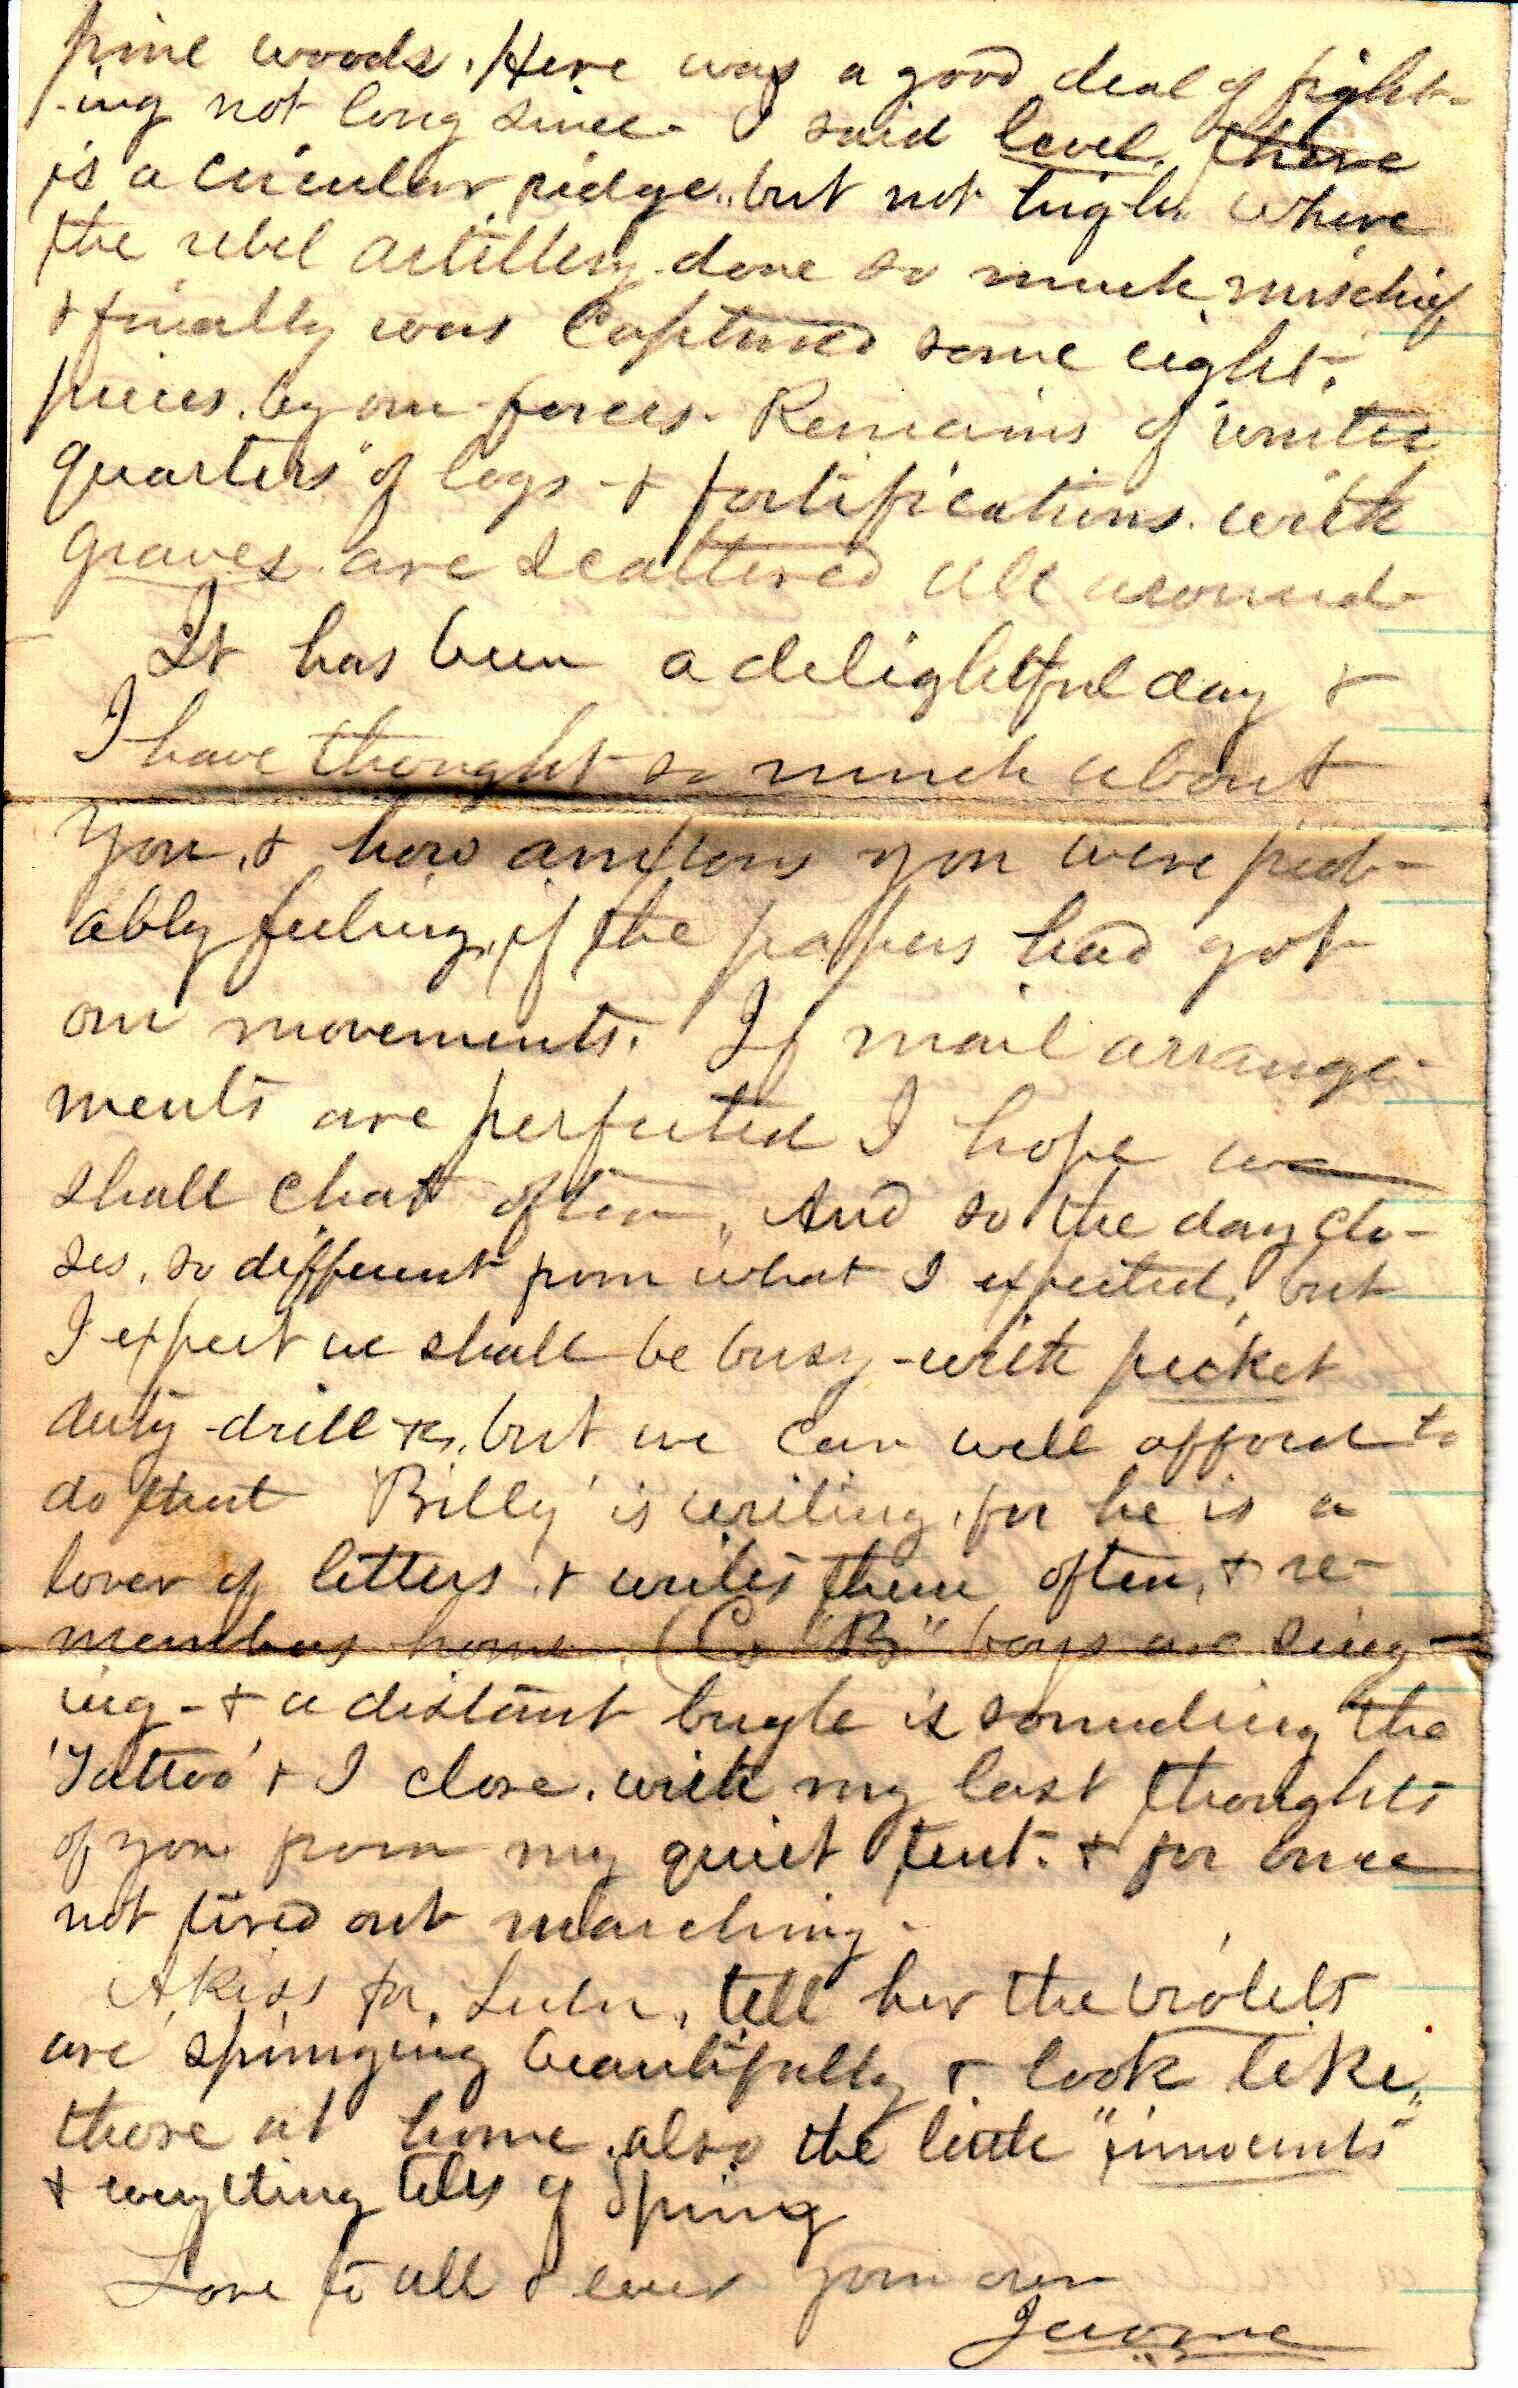 pine woods. Here was a good deal of fight-
ing not long since. I said level, there
is a circular ridge, but not high, where
the rebel artillery done so much mischief
& finally was captured some eight
pieces, by our forces. Remains of "winter
quarters" of logs - & fortifications with
graves are scattered all around
It has been a delightful day &
I have thought so much about
you, & how anxious you were prob-
ably feeling, if the papers had got
our movements. If mail arrange-
ments are perfected I hope we
shall chat often, And so the day clo-
ses, so different from what I expected, but
I expect we shall be busy - with picket
duty - drill &c, but we can well afford to
do that 'Billy' is writing, for he is a
lover of letters & writes them often, & re-
members home. (Co "B" boys are sing-
ing - & a distant bugle is sounding the
'Tattoo' & I close, with my last thoughts
of you from my quiet tent. & for once
not tired out marching.
A Kiss for Lulu, tell her the violets
are springing beautifully & look like
those at home, also the little "innocents"
& everything tells of Spring
Love to all & ever your own
Jerome